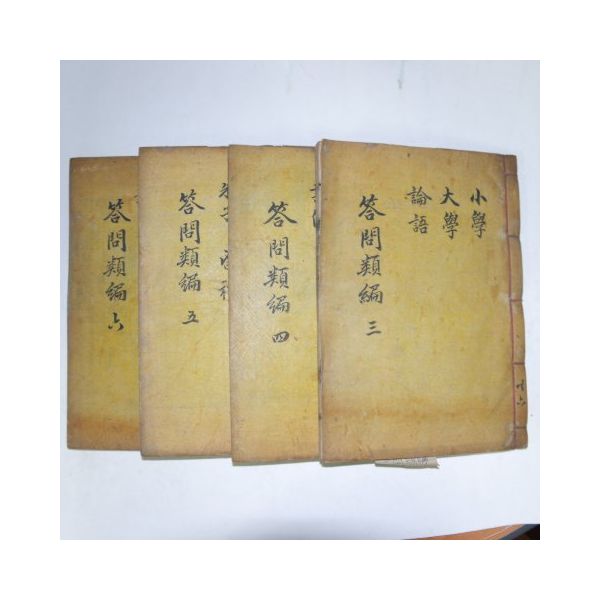 小學
大學
論語
答問類編 三
共六
答問類編 四
答問類編 五
答問類編 六